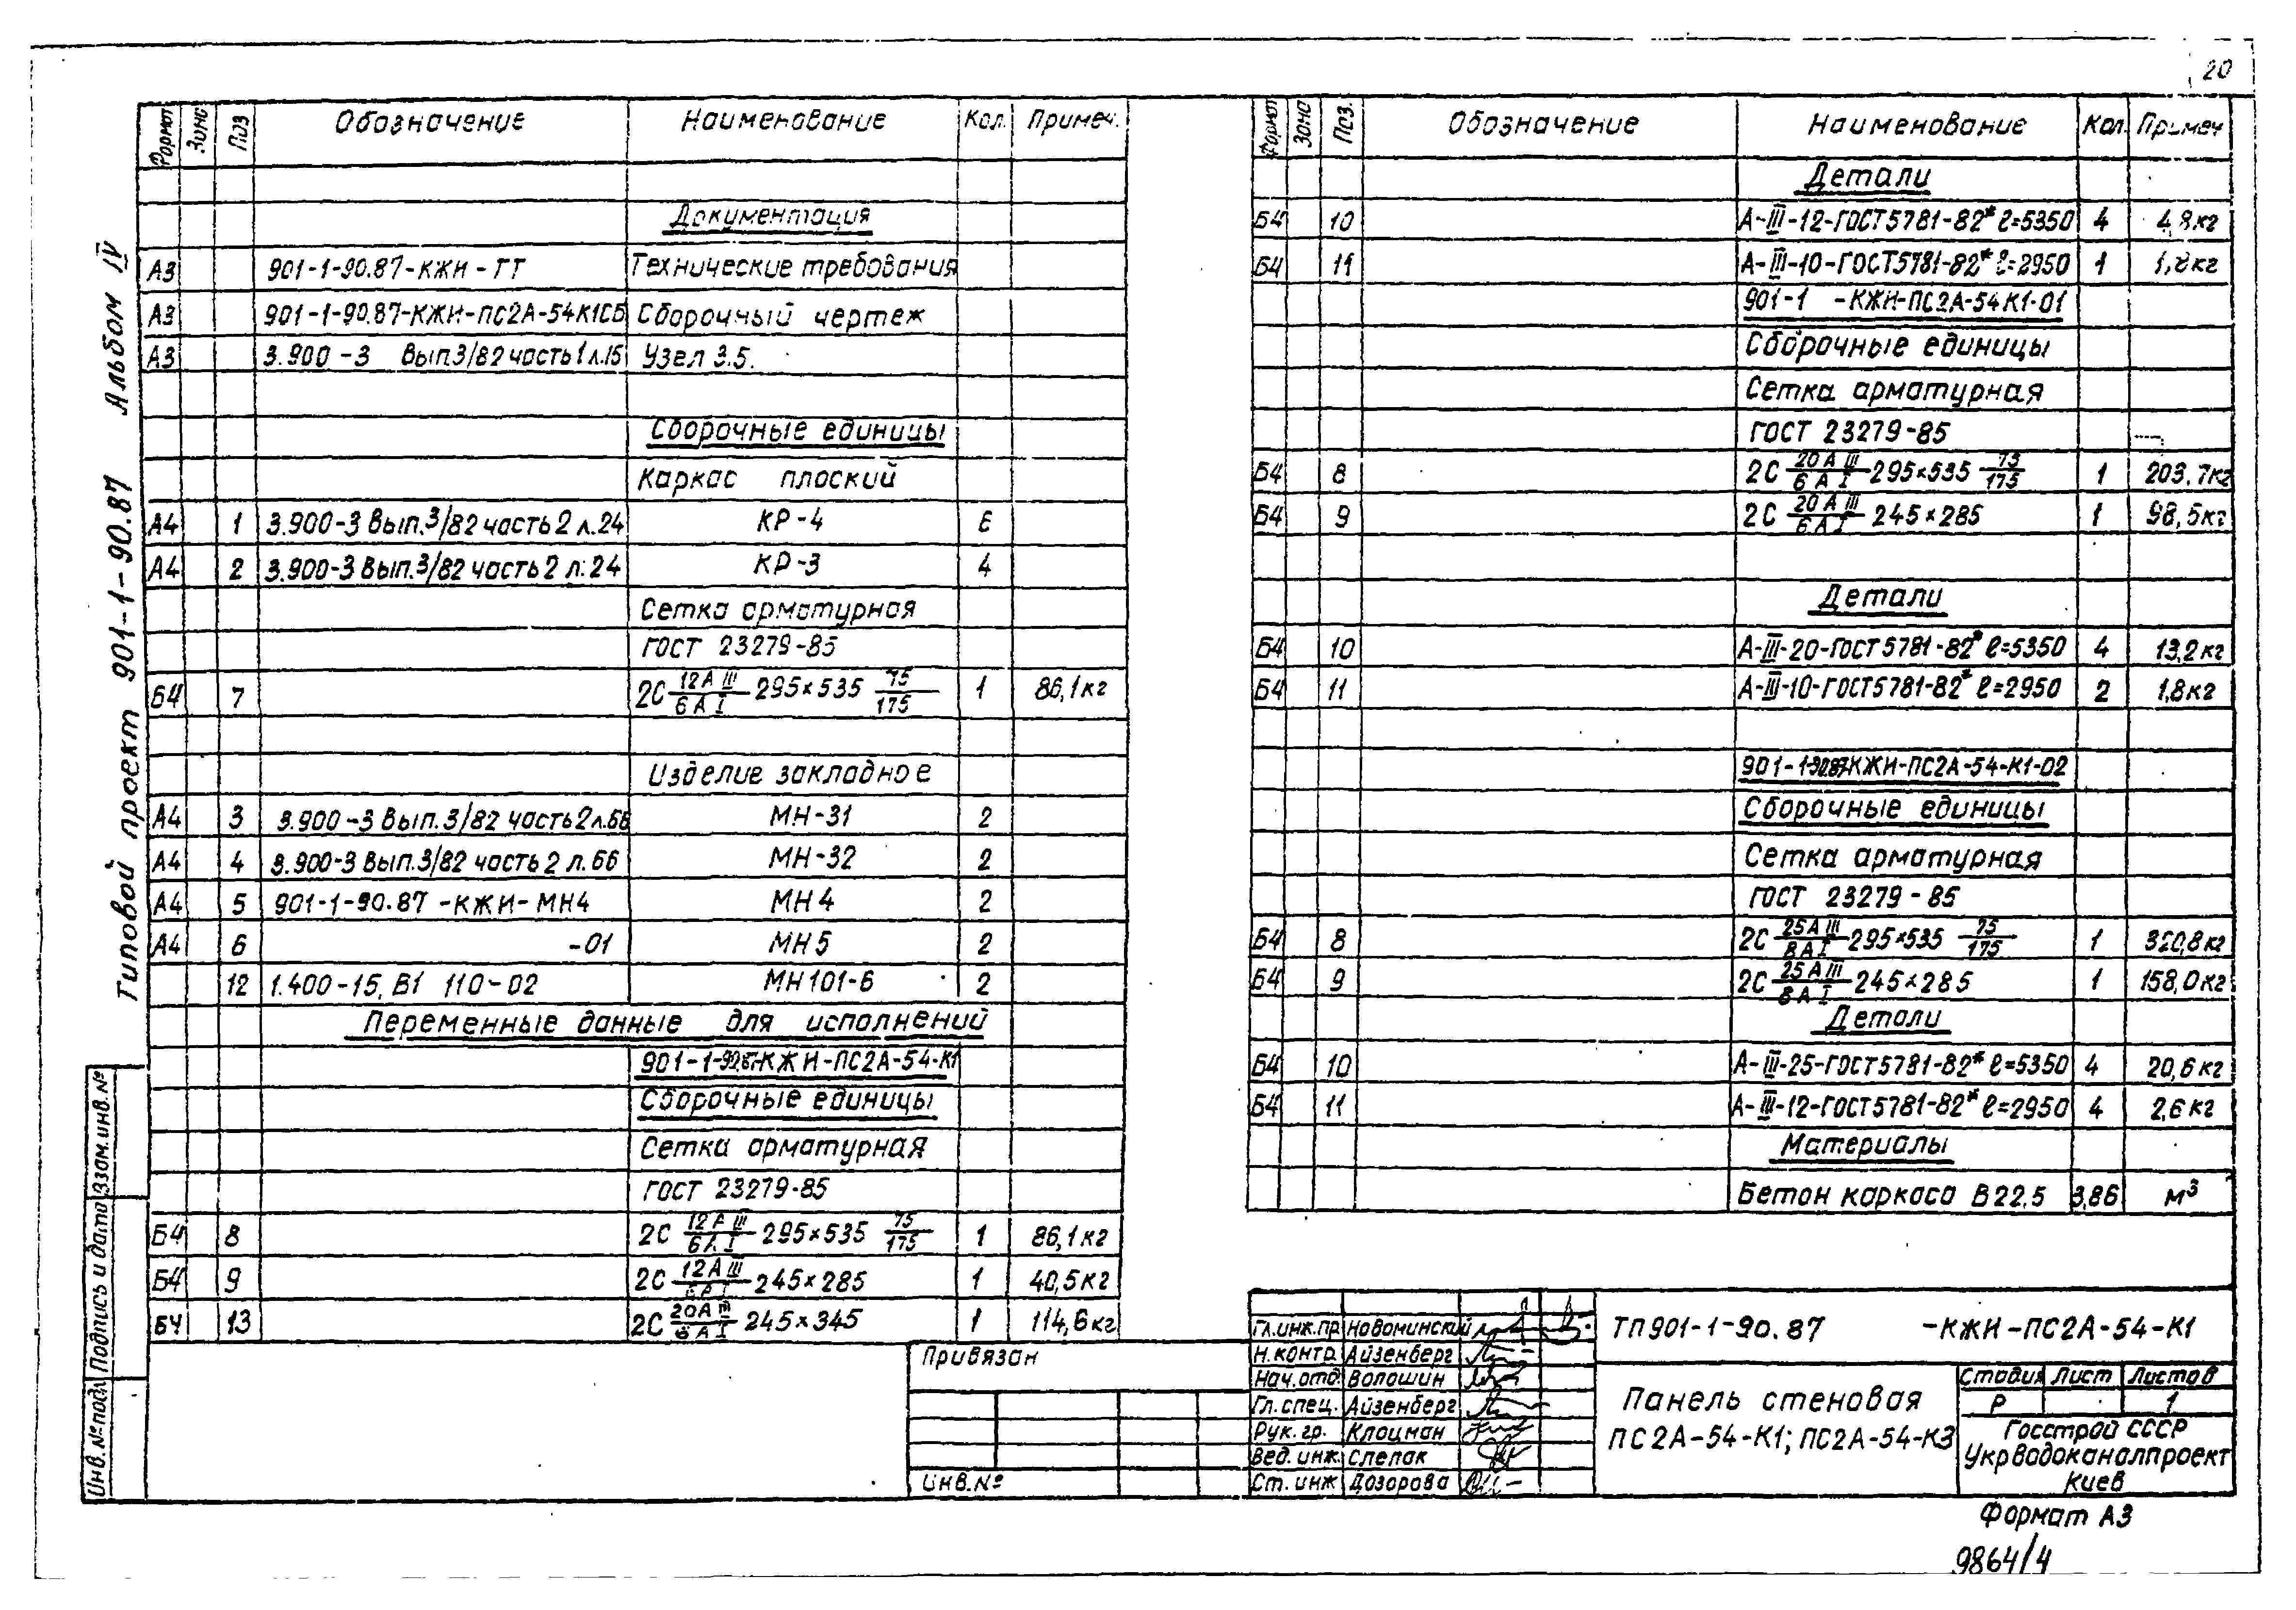 20
Типовой проект 901-1-90.87 Альбом IV
Формат Зона Поз Обозначение Наименование Кол. Примеч.
Документация
А3 901-1-90.87-КЖИ-ТТ Технические требования
А3 901-1-90.87-КЖИ-ПС2А-54К1СБ Сборочный чертеж
А3 3.900-3 Вып3/82 часть 1 л.15 Узел 3.5.
Сборочные единицы
Каркас плоский
А4 1 3.900-3 Вып.3/82 часть 2 л.24 КР-4 6
А4 2 3.900-3 Вып.3/82 часть 2 л.24 КР-3 4
Сетка арматурная
ГОСТ 23279-85
Б4 7 2С 12АIII/6АI 295×535 75/175 1 86,1кг
Изделие закладное
А4 3 3.900-3 Вып.3/82 часть 2 л.66 МН-31 2
А4 4 3.900-3 Вып.3/82 часть 2 л.66 МН-32 2
А4 5 901-1-90.87-КЖИ-МН4 МН4 2
А4 6 -01 МН5 2
12 1.400-15, В1 110-02 МН101-6 2
Переменные данные для исполнений
901-1-90.87-КЖИ-ПС2А-54-К1
Сборочные единицы
Сетка арматурная
ГОСТ 23279-85
Б4 8 2С 12АIII/6АI 295×535 75/175 1 86,1кг
Б4 9 2С 12АIII/6АI 245×285 1 40,5кг
Б4 13 2С 20АIII/6АI 245×345 1 114,6кг
Формат Зона Поз. Обозначение Наименование Кол. Примеч
Детали
Б4 10 А-III-12-ГОСТ5781-82* ℓ=5350 4 4,8кг
Б4 11 А-III-10-ГОСТ5781-82* ℓ=2950 1 1,8кг
901-1 -КЖИ-ПС2А-54К1-01
Сборочные единицы
Сетка арматурная
ГОСТ 23279-85
Б4 8 2С 20АIII/6АI 295×535 75/175 1 203,7кг
Б4 9 2С 20АIII/6АI 245×285 1 98,5кг
Детали
Б4 10 А-III-20-ГОСТ5781-82* ℓ=5350 4 13,2кг
Б4 11 А-III-10-ГОСТ5781-82* ℓ=2950 2 1,8кг
901-1-90.87-КЖИ-ПС2А-54-К1-02
Сборочные единицы
Сетка арматурная
ГОСТ 23279-85
Б4 8 2С 25АIII/8АI 295×535 75/175 1 320,8кг
Б4 9 2С 25АIII/8АI 245×285 1 158,0кг
Детали
Б4 10 А-III-25-ГОСТ5781-82* ℓ=5350 4 20,6кг
Б4 11 А-III-12-ГОСТ5781-82* ℓ=2950 4 2,6кг
Материалы
Бетон каркаса В22,5 3,86 м³
Инв.№подл Подпись и дата Взам.инв.№
Привязан
Инв.№
Гл.инж.пр Новоминский
Н.контр Айзенберг
Нач.отд Волошин
Гл.спец. Айзенберг
Рук.гр. Клоцман
Вед.инж. Слепак
Ст.инж Дозорова
ТП901-1-90.87 -КЖИ-ПС2А-54-К1
Панель стеновая
ПС2А-54-К1; ПС2А-54-К3
Стадия Лист Листов
Р 1
Госстрой СССР
Укрводоканалпроект
Киев
Формат А3
9864/4